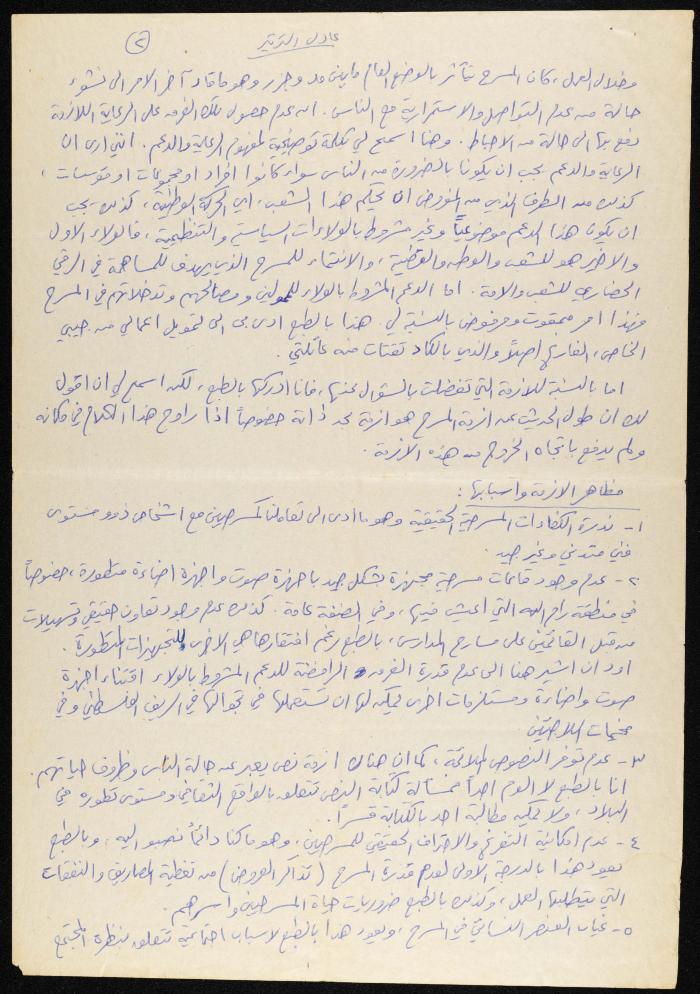 عادل الترتير
(٢)
وخلال العمل، كان المسرح يتأثر بالوضع العام ما بين مد وجزر وهو ما قاد آخر الامر الى نشوء
حالة من عدم التواصل والاستمرارية مع الناس. ان عدم حصول تلك الفرق على الرعاية اللازمة
دفع بها الى حالة من الاحباط. وهنا اسمح لي بكلمة توضيحية لمفهوم الرعاية والدعم. انني ارى ان
الرعاية والدعم يجب ان يكونا بالضرورة من الناس سواء كانوا افراد او مجموعات او مؤسسات،
كذلك من الطرف الذي من المفروض ان يحكم هذا الشعب، اي الحركة الوطنية، كذلك يجب
ان يكون هذا الدعم موضوعياً وغير مشروط بالولاءات السياسية والتنظيمية، فالولاء الاول
والاخير هو للشعب والوطن والقضية، والانتماء للمسرح الذي يهدف للمساهمة في الرقي
الحضاري للشعب والامة. اما الدعم المشروط بالولاء للممولين ومصالحهم وتدخلاتهم في المسرح
فهذا امر ممقوت ومرفوض بالنسبة لي. هذا بالطبع ادى بي الى تمويل اعمالي من جيبي
الخاص، الفارغ اصلاً والذي بالكاد تقتات منه عائلتي.
اما بالنسبة للازمة التي تفضلت بالسؤال عنها، فانا ادركها بالطبع، لكن اسمح لي ان اقول
لك ان طول الحديث عن ازمة المسرح هو ازمة بحد ذاته خصوصاً اذا راوح هذا الكلام في مكانه
ولم يدفع باتجاه الخروج من هذه الازمة.
مظاهر الازمة واسبابها:
١- ندرة الكفاءات المسرحية الحقيقية وهو ما ادى الى تعاملنا كمسرحيين مع اشخاص ذوو مستوى
فني متدني وغير جيد.
٢- عدم وجود قاعات مسرحية مجهزة بشكل جيد باجهزة صوت واجهزة اضاءة متطورة، خصوصاً
في منطقة رام الله التي اعيش فيها، وفي الضفة عامة. كذلك عدم وجود تعاون حقيقي وتسهيلات
من قبل القائمين على مسارح المدارس، بالطبع رغم افتقارها هي الاخرى للتجهيزات المتطورة.
اود ان اشير هنا الى عدم قدرة الفرق الرافضة للدعم المشروط بالولاء اقتناء اجهزة
صوت واضاءة ومستلزمات اخرى يمكن لها ان تستعملها في تجوالها في الريف الفلسطيني وفي
مخيمات اللاجئين.
٣- عدم توفر النصوص الملائمة، كما ان هناك ازمة نص يعبر عن حالة الناس وظروف حياتهم.
انا بالطبع لا الوم احداً فمسألة كتابة النص تتعلق بالواقع الثقافي ومستوى تطوره في
البلاد، ولا يمكن مطالبة احد بالكتابة قسراً.
٤- عدم امكانية التفرغ والاحتراف الحقيقي للمسرحيين، وهو ما كنا دائماً نصبو اليه، وبالطبع
يعود هذا بالدرجة الاولى لعدم قدرة المسرح (تذاكر العروض) من تغطية المصاريف والنفقات
التي يتطلبها العمل، وكذلك بالطبع ضروريات حياة المسرحيين واسرهم.
٥- غياب العنصر النسائي في المسرح، ويعود هذا بالطبع لاسباب اجتماعية تتعلق بنظرة المجتمع